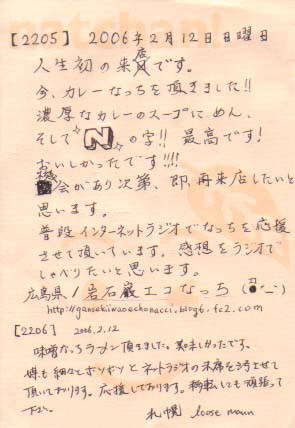 [2205] 2006年2月12日日曜日
人生初の来店です。
今、カレーなっちを頂きました!!
濃厚なカレーのスープにめん、
そして N の字!! 最高です!
おいしかったです!!!!
機会があり次第、即、再来店したいと
思います。
普段インターネットラジオでなっちを応援
させて頂いています。感想をラジオで
しゃべりたいと思います。
広島県/岩石巌エコなっち
http://gansekiiwaoechonacci.blog6.fc2.com
[2206] 2006.2.12
味噌なっちラメン頂きました。美味しかったです。
細々とボソボソとネットラジオの末席を汚させて
頂いております。応援しております。移転しても頑張って
下さい。
札幌 loose moun